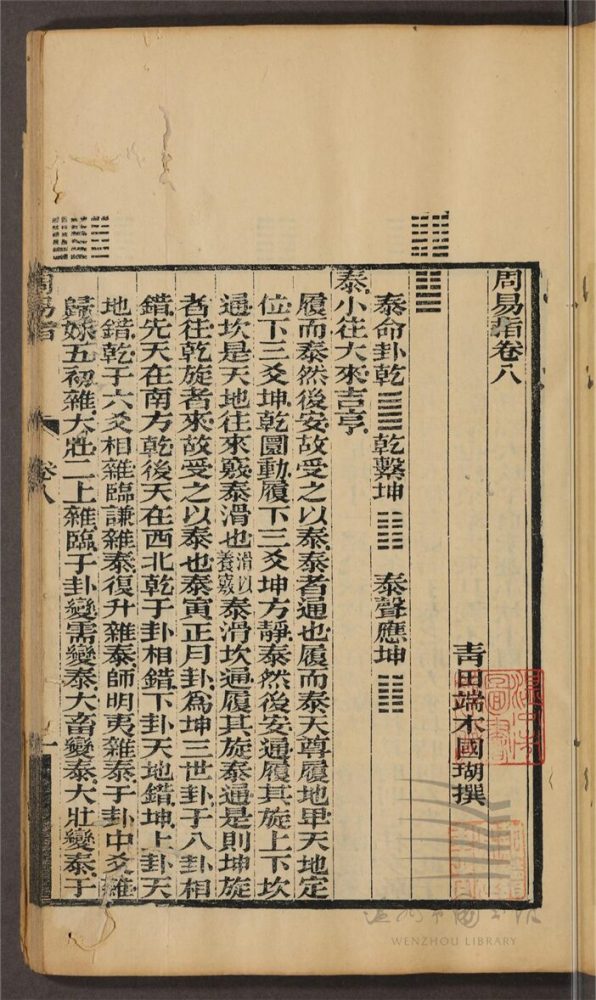 周易指卷八
青田端木國瑚撰
泰命卦乾䷀乾繫坤䷁泰聲應坤䷁
泰小往大來吉亨
履而泰然後安故受之以泰泰者通也履而泰天尊履地卑天地定
位下三爻坤乾圜動履下三爻坤方靜泰然後安通履其旋上下坎
通坎是天地往來竅泰滑也滑以養竅泰滑坎通履其旋泰通是則坤旋
者往乾旋者來故受之以泰也泰寅正月卦爲坤三世卦于八卦相
錯先天在南方乾後天在西北乾于卦相錯下卦天地錯坤上卦天
地錯乾于六爻相雜臨謙雜泰復升雜泰師明夷雜泰于卦中爻雜
歸妹五初雜大壯二上雜臨于卦變需變泰大畜變泰大壯變泰于
周易指
卷八
一
WENZHOU LIBRARY